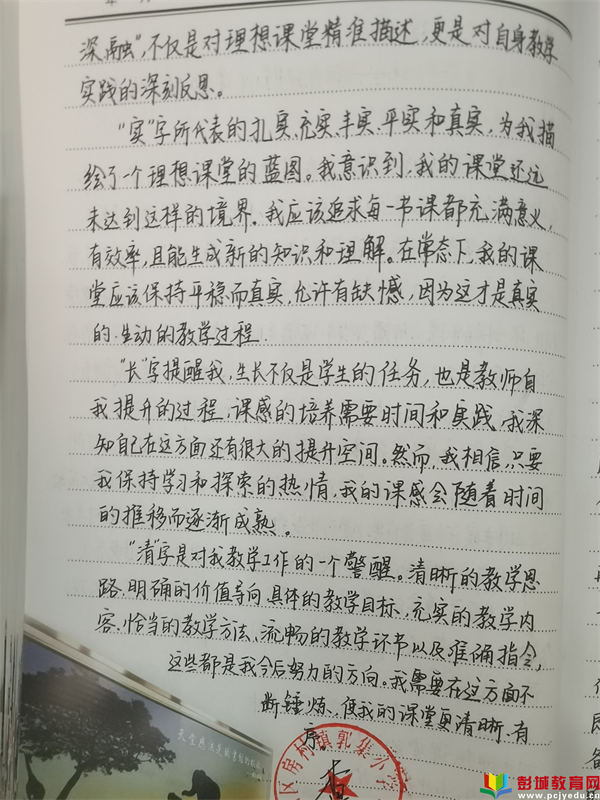 深、融”,不仅是对理想课堂精准描述,更是对自身教学
实践的深刻反思。
“实”字所代表的扎实、充实、丰实、平实和真实,为我描
绘了一个理想课堂的蓝图。我意识到,我的课堂还远
未达到这样的境界。我应该追求每一书课都充满意义,
有效率,且能生成新的知识和理解。在常态下,我的课
堂应该保持平稳而真实,允许有缺憾,因为这才是真实
的、生动的教学过程.
“长”字提醒我,生长不仅是学生的任务,也是教师自
我提升的过程,课感的培养需要时间和实践,我深
知自己在这方面还有很大的提升空间。然而,我相信,只要
我保持学习和探索的热情,我的课感会随着时间
的推移而逐渐成熟。
“清”字是对我教学工作的一个警醒。清晰的教学思
路、明确的价值导向、具体的教学目标、充实的教学内
容、恰当的教学方法、流畅的教学环书以及准确指令,
这些都是我今后努力的方向。我需要在这方面不
断锤炼、使我的课堂更清晰、有
序。
区房村镇郭集小学
彭城教育网
www.pcjyedu.cn